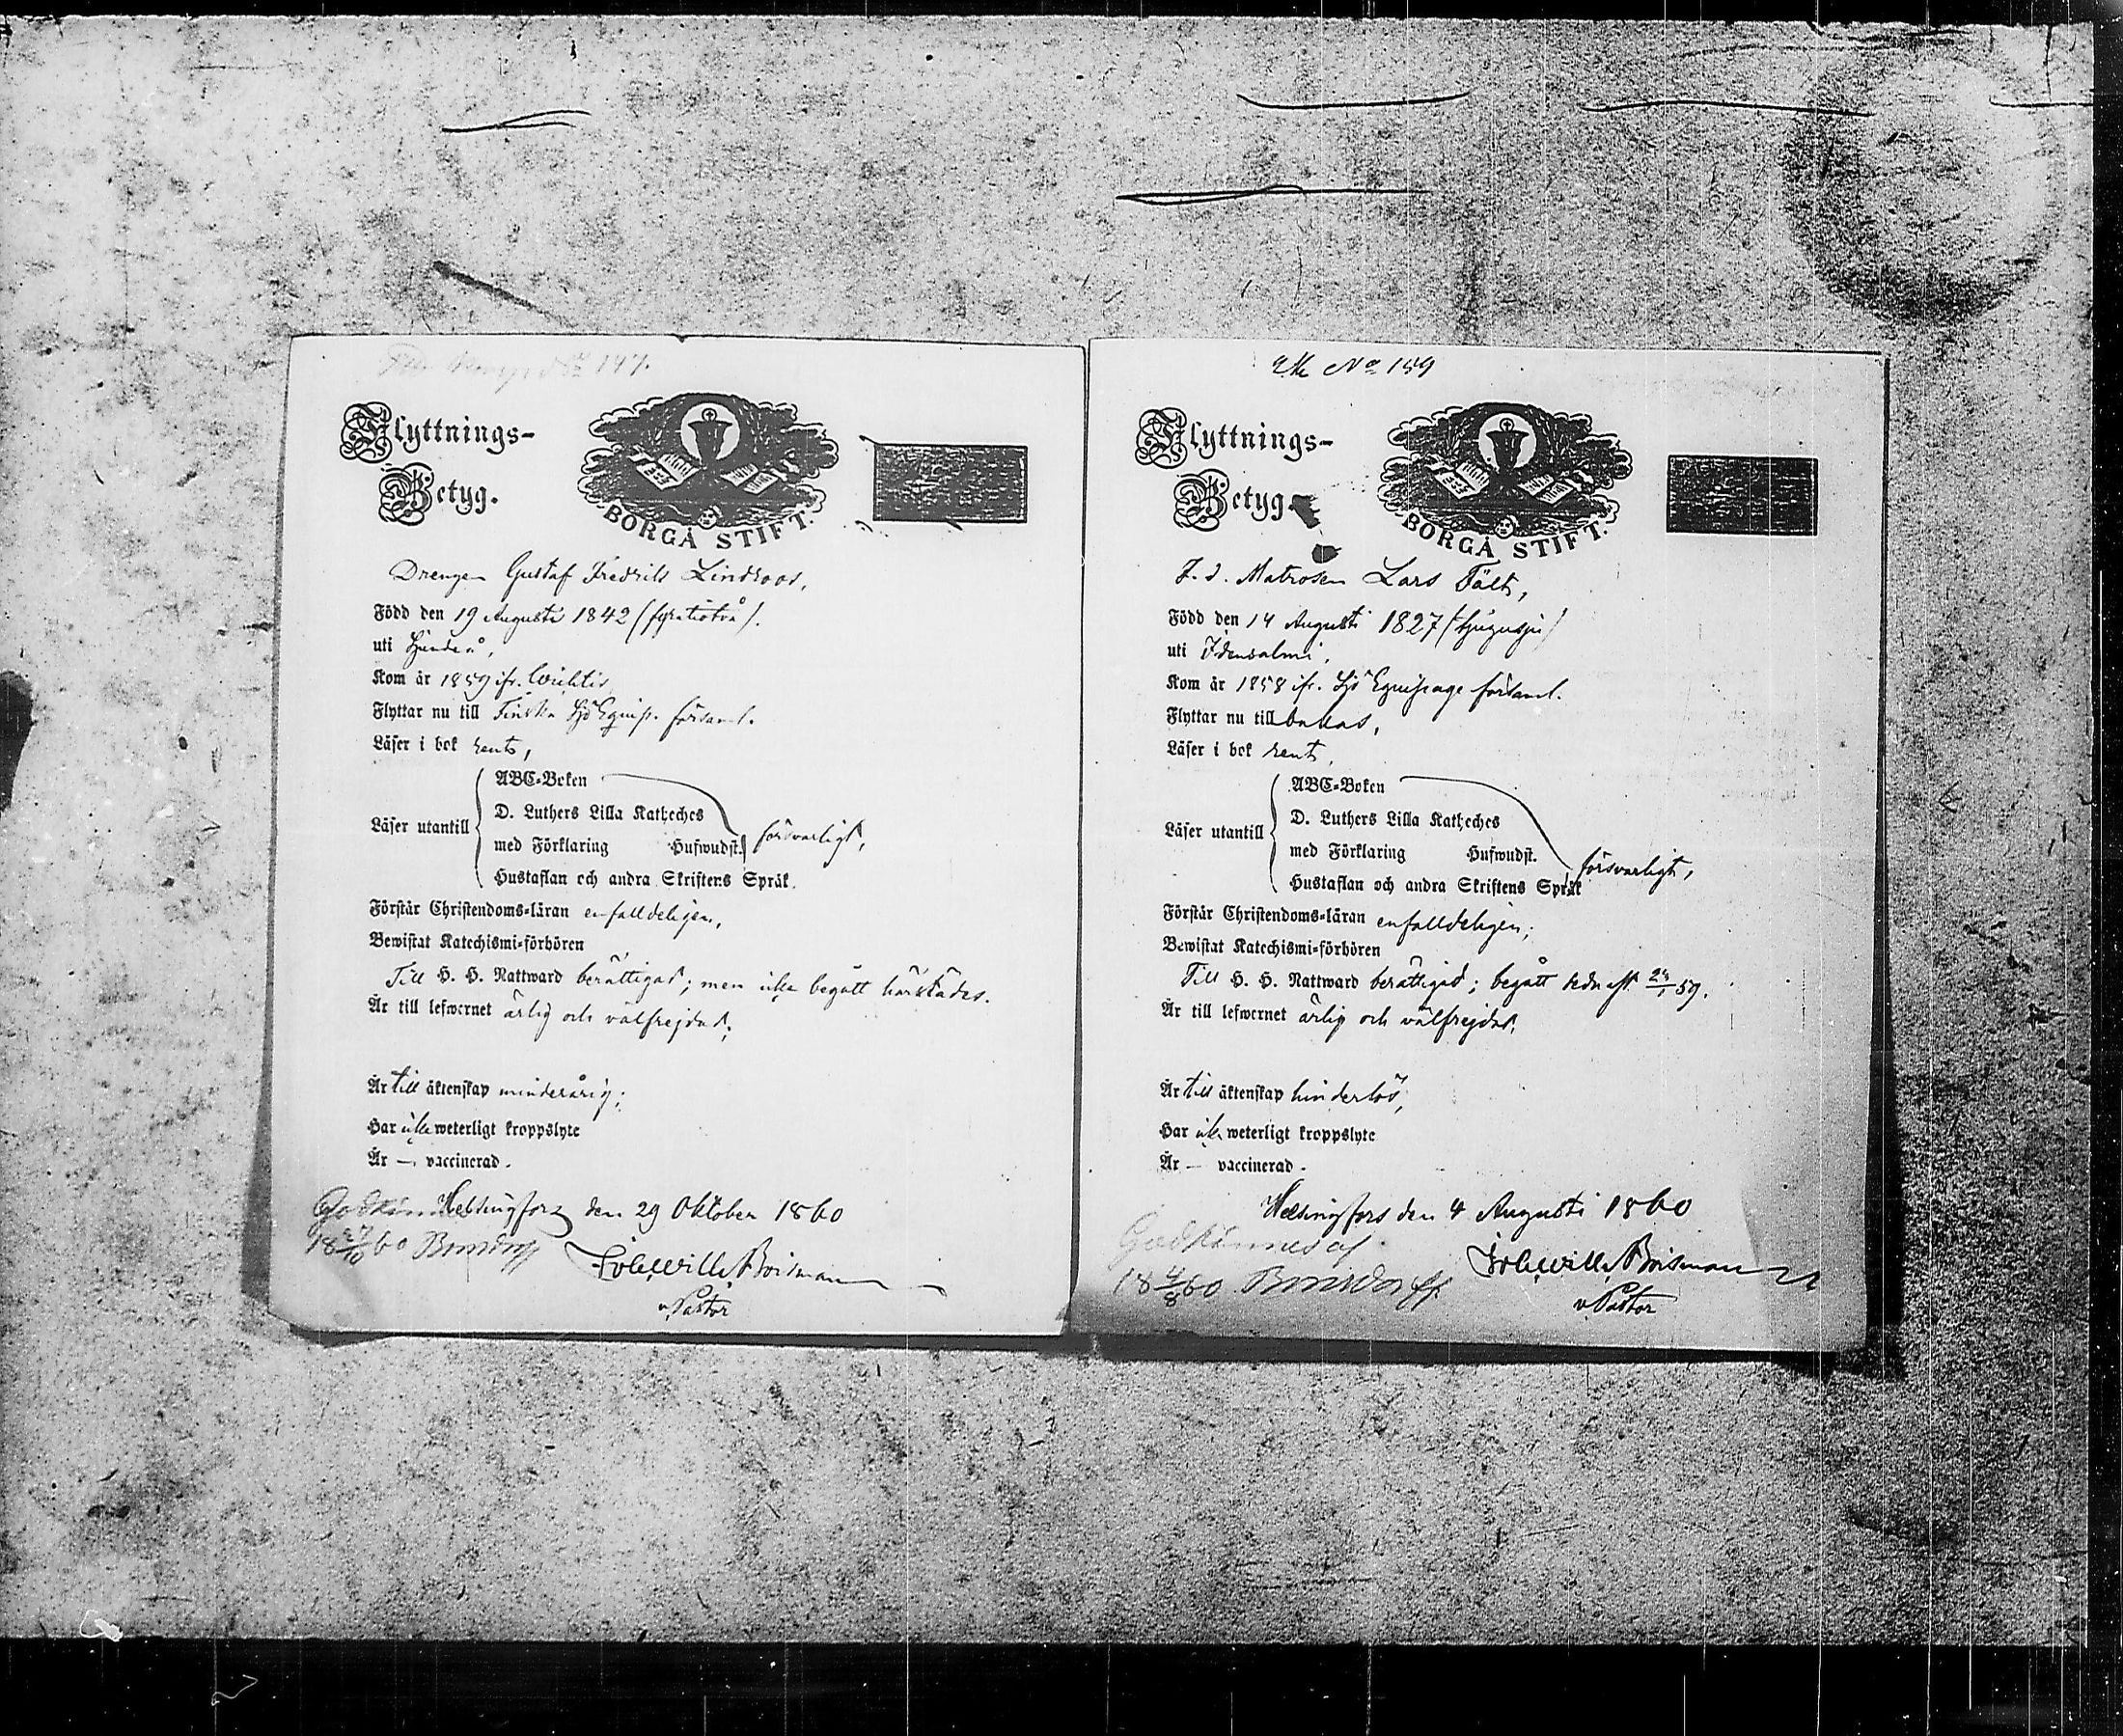 No 147.
Flyttnings-
Betyg.
BORGÅ STIFT.
Drengen Gustaf Fredrik Lindroos,
Född den 19 Augusti 1842 (fyratiotvå).
uti Sjundeå,
Kom år 1859 ifr. Wichtis
Flyttar nu till Finska Sjö Equip. församl.
Läser i bok rent,
Läser utantill
ABC-Boken
D. Luthers Lilla Katheches
med Förklaring Hufwudst. försvarligt,
Hustaflan och andra Skriftens Språk.
Förstår Christendoms-läran enfalldeligen,
Bewistat Katechismi-förhören
Till H. H. Nattward berättigad; men icke begått härstädes.
Är till lefwernet ärlig och välfrejdad;
Är till äktenskap minderårig;
Har icke weterligt kroppslyte
Är — vaccinerad.
Helsingfors den 29 Oktober 1860
18 27/10 60
Boisman
v. Pastor
No 159
Flyttnings-
Betyg.
BORGÅ STIFT.
F. d. Matrosen Lars Fält,
Född den 14 Augusti 1827 (tjugusju)
uti Idensalmi,
Kom år 1858 ifr. Sjö Equipage församl.
Flyttar nu till bakas,
Läser i bok rent,
Läser utantill
ABC-Boken
D. Luthers Lilla Katheches
med Förklaring Hufwudst.
Hustaflan och andra Skriftens Språk försvarligt,
Förstår Christendoms-läran enfalldeligen;
Bewistat Katechismi-förhören
Till H. H. Nattward berättigad; begått 59.
Är till lefwernet ärlig och välfrejdad;
Är till äktenskap hinderlös,
Har icke weterligt kroppslyte
Är — vaccinerad.
Helsingfors den 4 Augusti 1860
Godkännes af
18 4/8 60 Bonsdorff
Boisman
v. Pastor